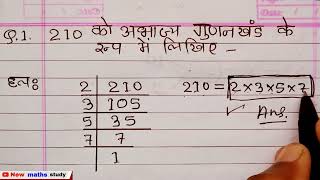 Q.1. 210 को अभाज्य गुणनखंड के
रूप में लिखिए -
हलः
2 | 210
3 | 105
5 | 35
7 | 7
1
210 = 2×3×5×7
Ans.
New maths study